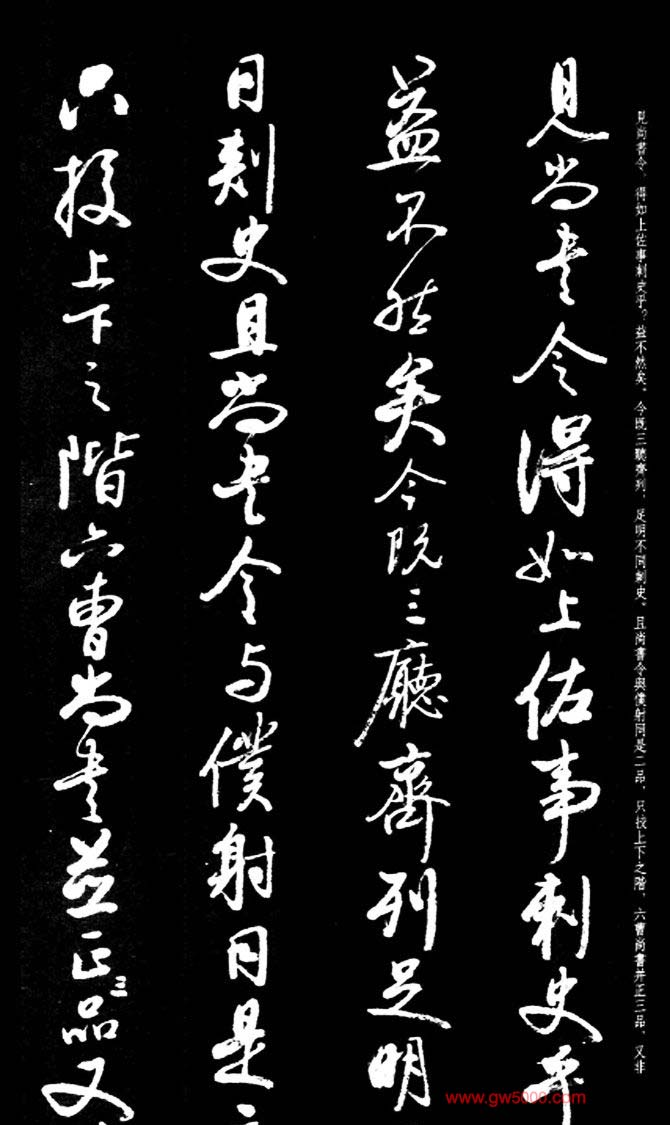 見尚書令，得如上佐事刺史乎？益不然矣。今既三聽齊列，足明不同刺史。且尚書令與僕射同是二品，只挍上下之階，六曹尚書并正三品，又非
見尚書令得如上佐事刺史乎
益不然矣今既三廳齊列足明
同刺史且尚書令与僕射同是
只挍上下之階六曹尚書並正三品又
www.gw5000.com